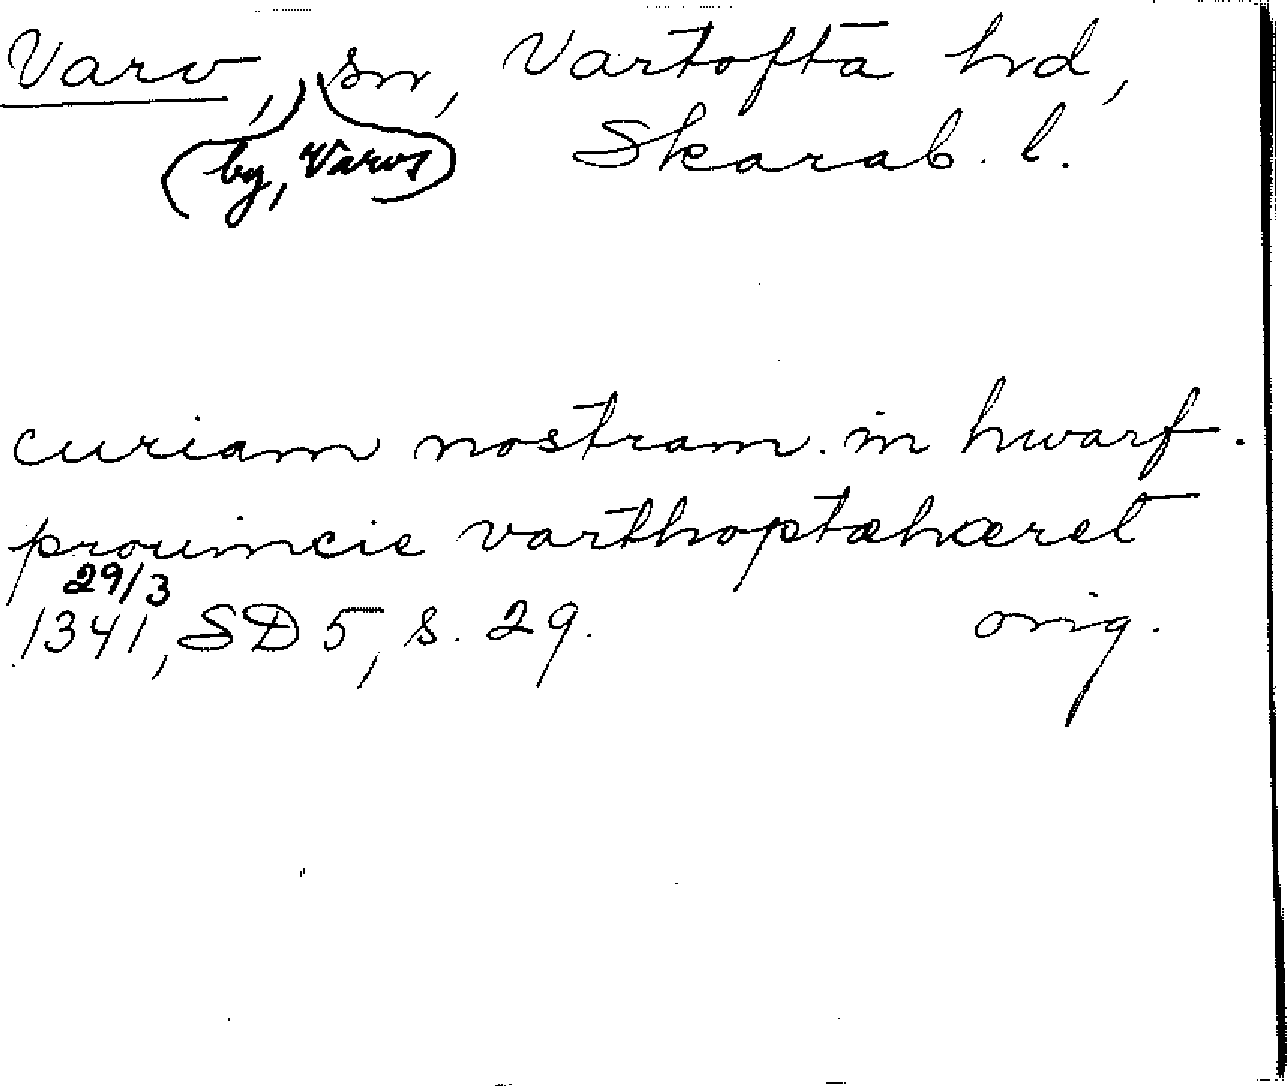 Varv, sn, Vartofta hd,
(by, Varvs)
Skarab. l.
curiam nostram. in hwarf.
prouincie varthoptæhæret
29/3
1341, SD 5, s. 29. orig.